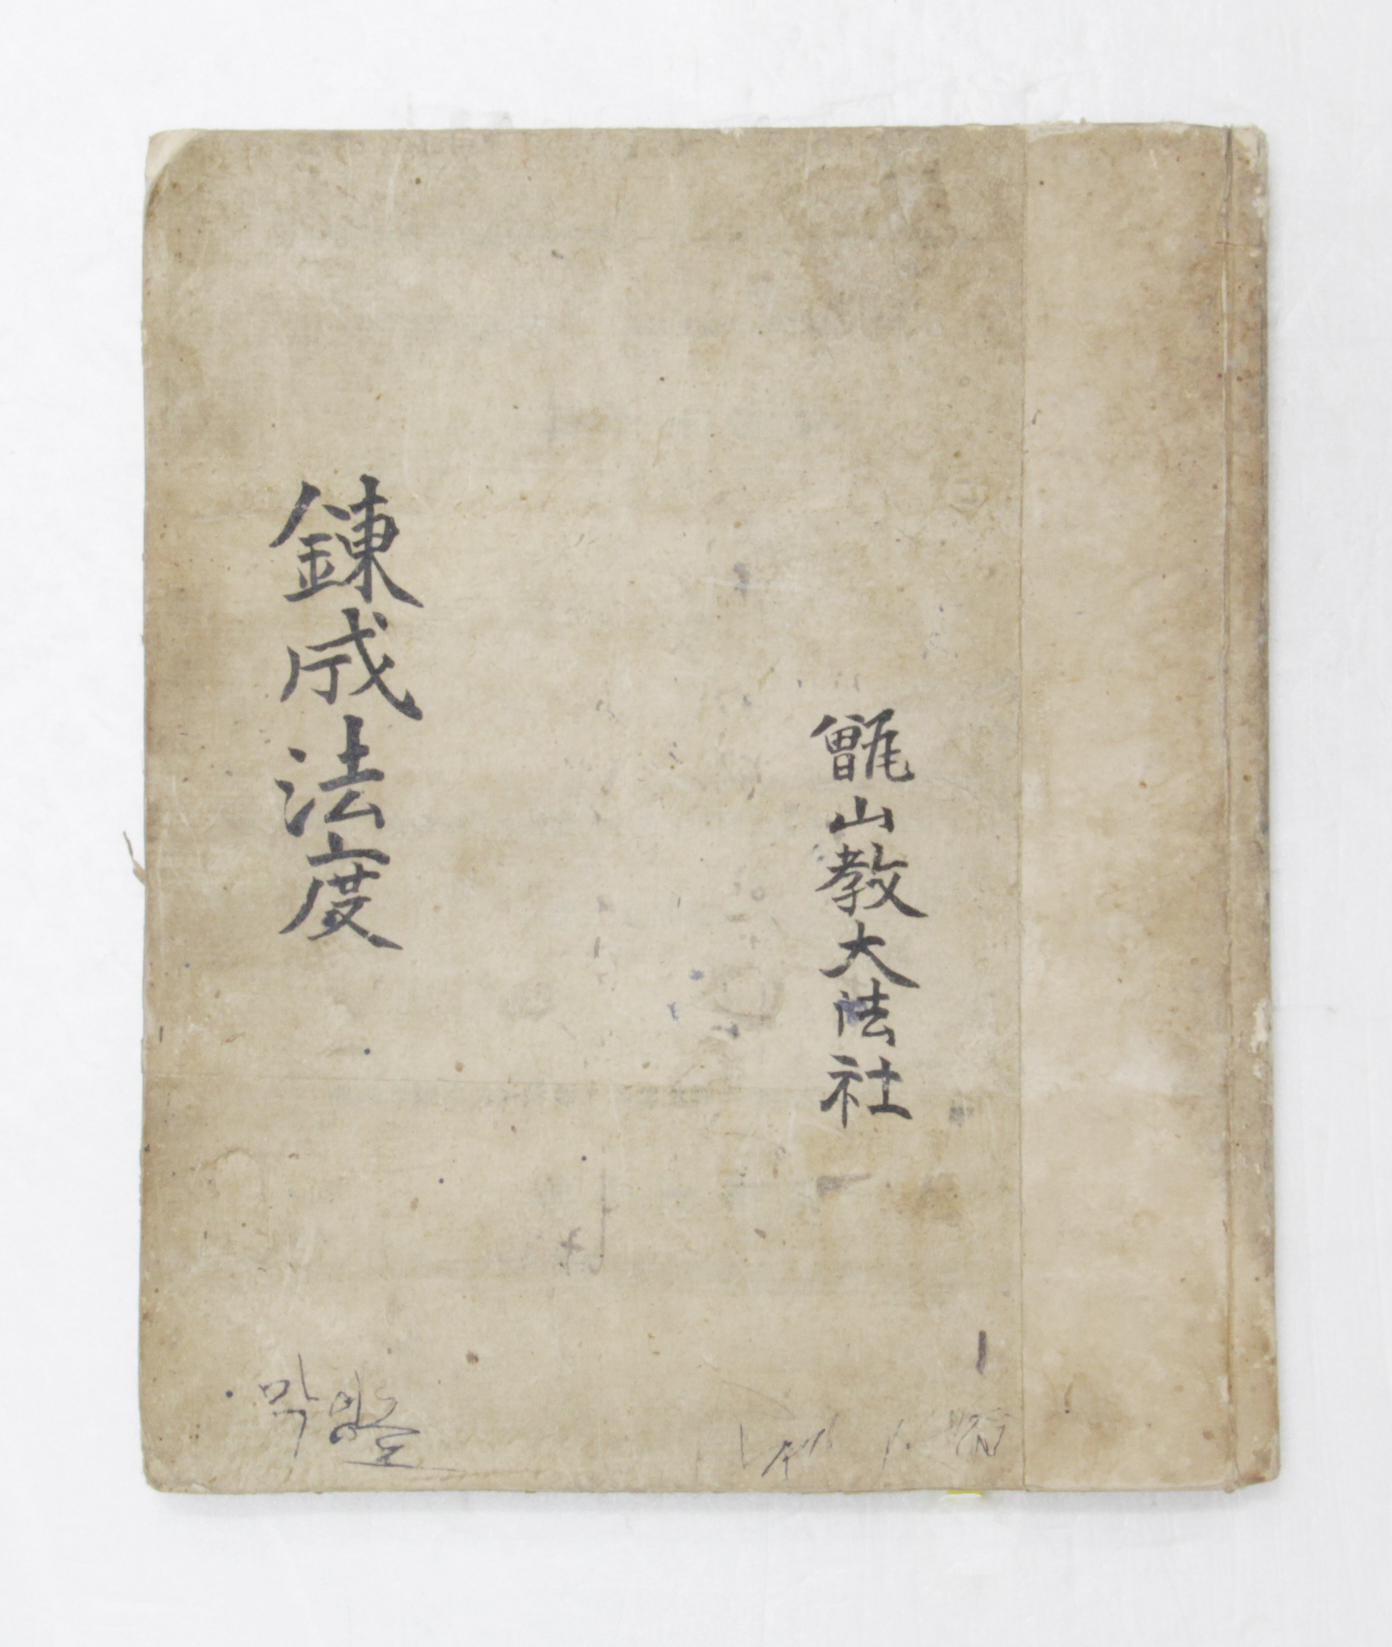 甑山教大法社
鍊成法度